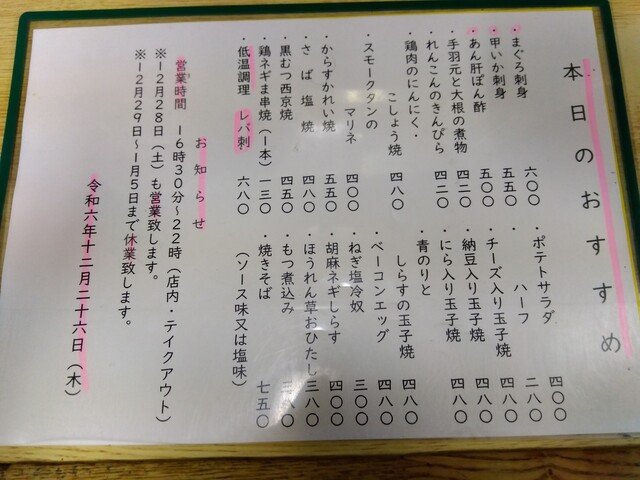 本日のおすすめ
・まぐろ刺身 六〇〇
・甲いか刺身 五五〇
・あん肝ぽん酢 五〇〇
・手羽元と大根の煮物 四二〇
・れんこんのきんぴら 四二〇
・鶏肉のにんにく・
こしょう焼 四八〇
・スモークタンの
マリネ 四〇〇
・からすかれい焼 五五〇
・さば塩焼 四八〇
・黒むつ西京焼 四五〇
・鶏ネギま串焼(1本) 一三〇
・低温調理 レバ刺 六八〇
・ポテトサラダ 四〇〇
ハーフ 二八〇
・チーズ入り玉子焼 四八〇
・納豆入り玉子焼 四八〇
・にら入り玉子焼 四八〇
・青のりと
しらすの玉子焼 四八〇
・ベーコンエッグ 四八〇
・ねぎ塩冷奴 三〇〇
・胡麻ネギしらす 四〇〇
・ほうれん草おひたし 三八〇
・もつ煮込み 三八〇
・焼きそば 七五〇
(ソース味又は塩味)
お知らせ
営業時間 16時30分~22時(店内・テイクアウト)
※12月28日(土)も営業致します。
※12月29日~1月5日まで休業致します。
令和六年十二月二十六日(木)